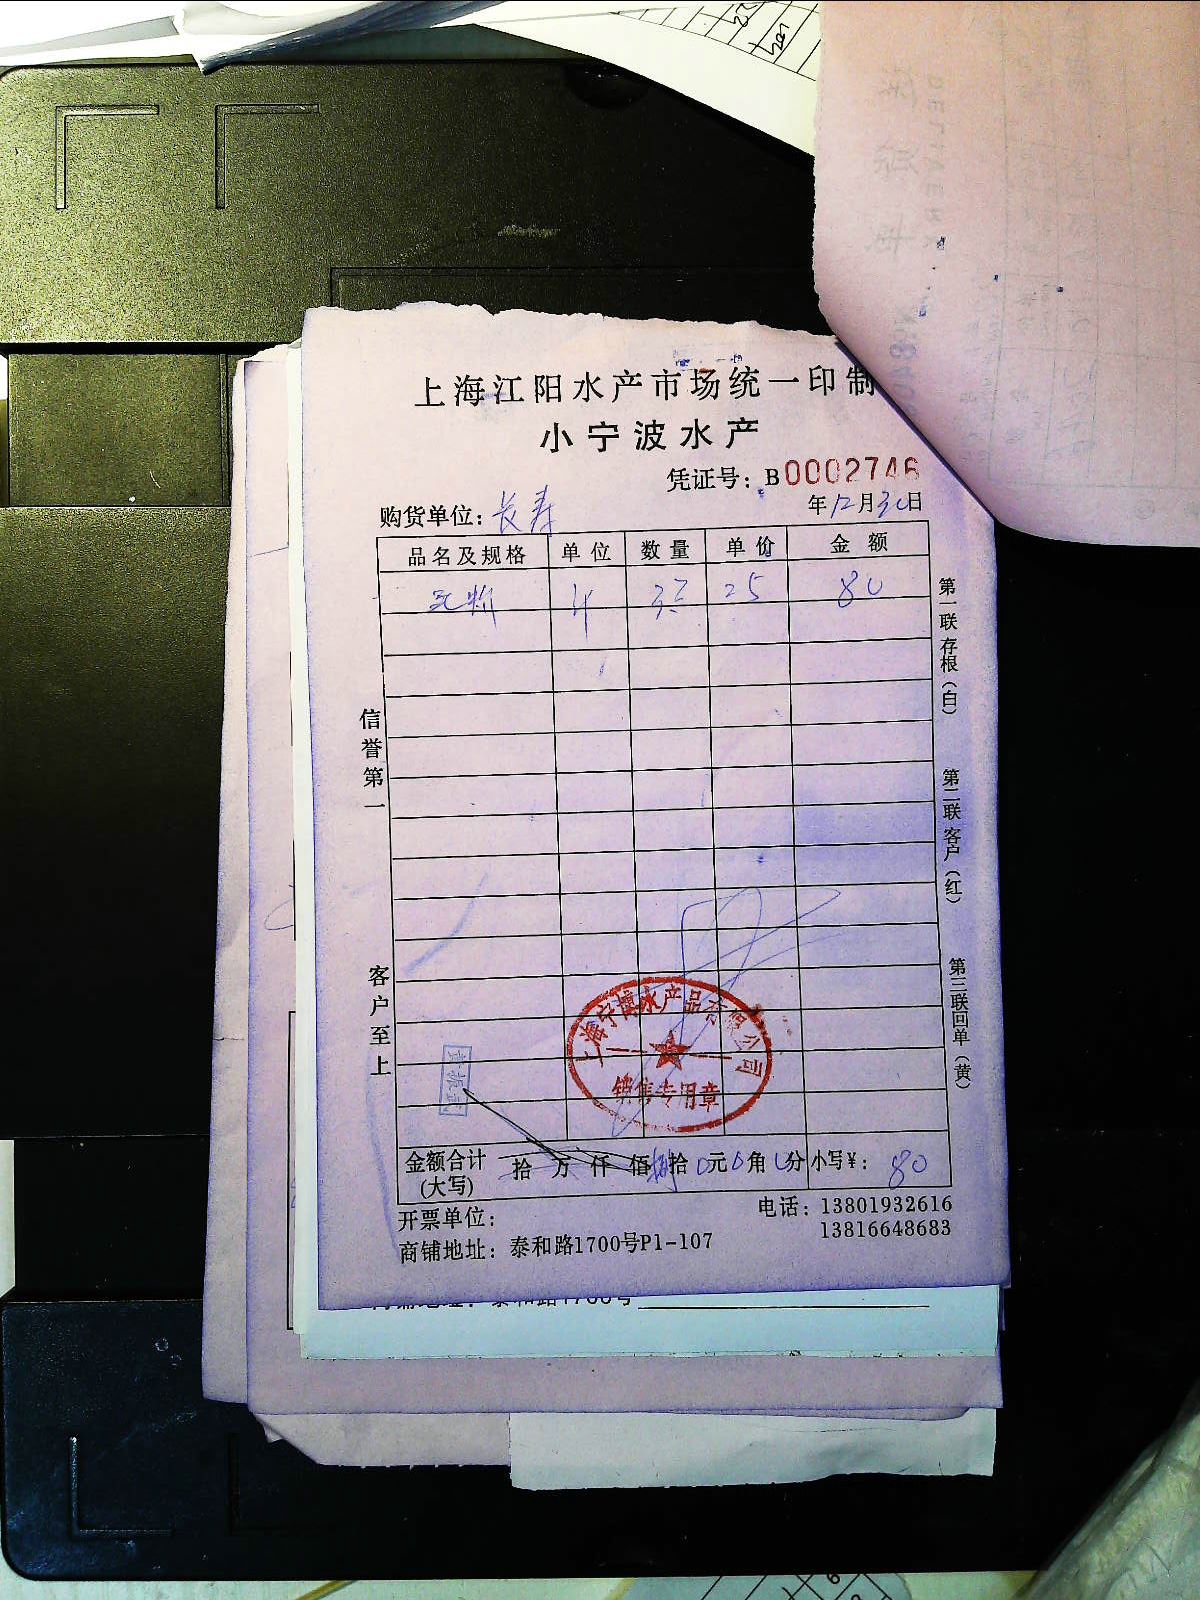 上海江阳水产市场统一印制
小宁波水产
凭证号：B0002746
购货单位：长寿 年12月30日
品名及规格 单位 数量 单价 金额
25 80
信誉第一
客户至上
第一联存根（白）
第二联客户（红）
第三联回单（黄）
上海宁博水产品有限公司
销售专用章
金额合计（大写） 拾 万 仟 佰 捌拾0元0角0分 小写¥：80
开票单位：
电话：13801932616
13816648683
商铺地址：泰和路1700号P1-107